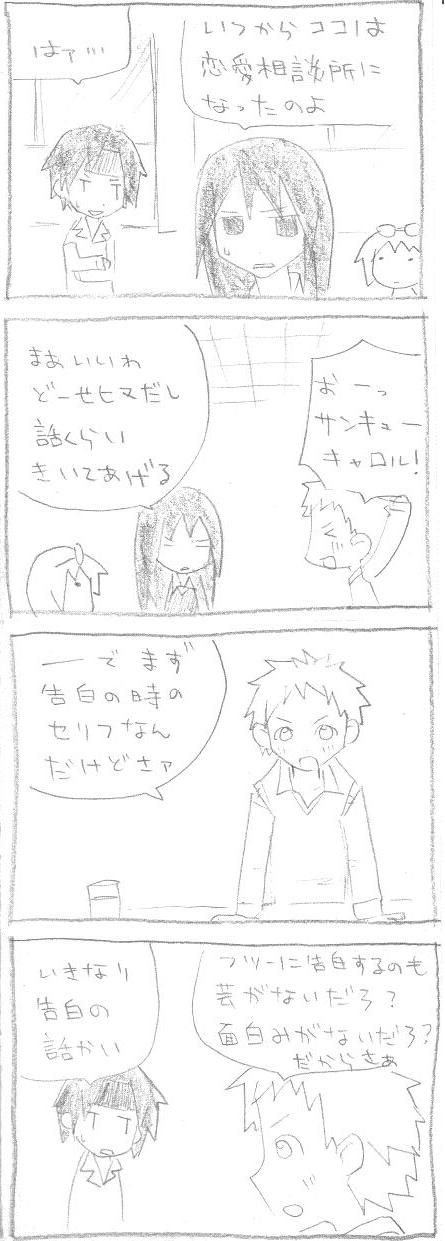 いつからココは
恋愛相談所に
なったのよ
はァ…
おーっ
サンキュー
キャロル!
まあいいわ
どーせヒマだし
話くらい
きいてあげる
―でまず
告白の時の
セリフなん
だけどさァ
フツーに告白するのも
芸がないだろ?
面白みがないだろ?
だからさぁ
いきなり
告白の
話かい